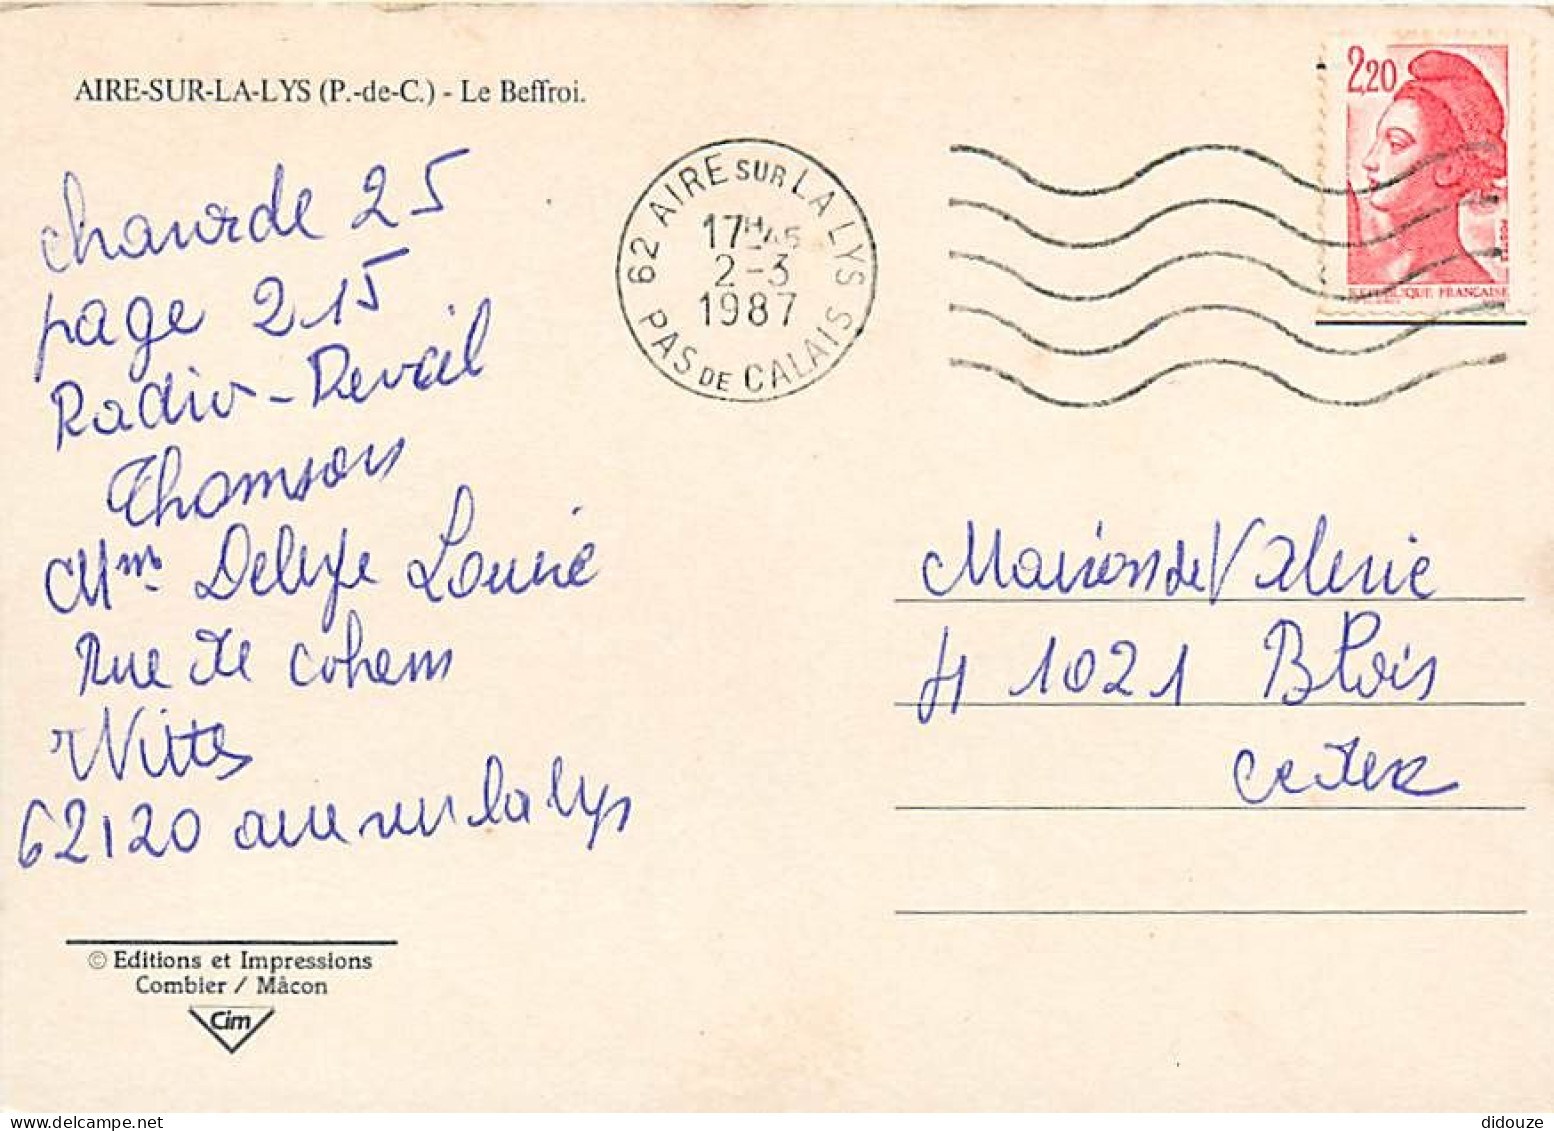 AIRE-SUR-LA-LYS (P.-de-C.) - Le Beffroi.
2,20
REPUBLIQUE FRANÇAISE
62 AIRE SUR LA LYS
17H45
2-3
1987
PAS DE CALAIS
charade 25
page 215
Radio-Reveil
Thomson
Mme Louise
Rue de cohem
Wittes
62120 aire sur la lys
Maison de Valerie
41021 Blois
cedex
© Editions et Impressions
Combier / Mâcon
Cim
didouze